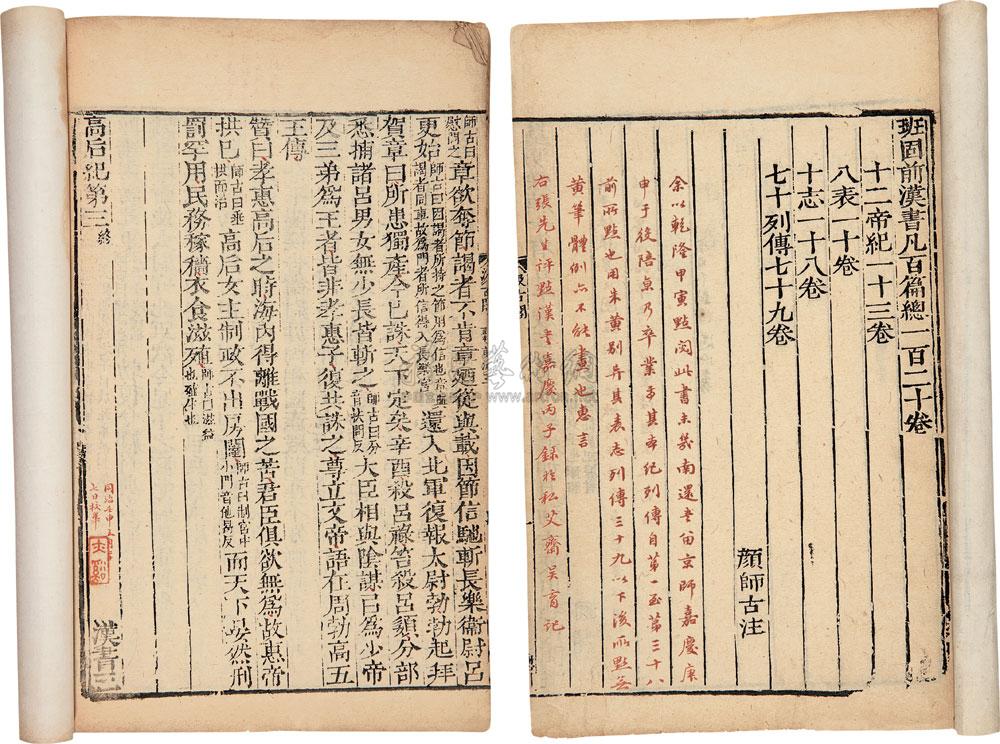 班固前漢書凡百篇總一百二十卷
十二帝紀一十三卷
八表一十卷
十志一十八卷
七十列傳七十九卷
顏師古注
余以乾隆甲寅點閱此書未幾南還書留京師嘉慶庚
申于役陪京乃卒業焉其本紀列傳自第一至第三十八
前所點也用朱黃別異其表志列傳三十九以下後所點無
黃筆體例亦不能畫也惠言
右張先生評點漢書嘉慶丙子錄於私艾齋吳育記
汲古閣
師古曰慰問之章欲奪節謁者不肯章廼從與載因節信馳斬長樂衞尉呂
更始師古曰因謁者所持之節用為信也章與謁者同車故為門者所信得入長樂宮還入北軍復報太尉勃勃起拜
賀章曰所患獨產今已誅天下定矣辛酉殺呂祿笞殺呂嬃分部
悉捕諸呂男女無少長皆斬之師古曰分音扶問反大臣相與陰謀以為少帝
及三弟為王者皆非孝惠子復共誅之尊立文帝語在周勃高五
王傳
贊曰孝惠高后之時海內得離戰國之苦君臣俱欲無為故惠帝
拱己師古曰垂拱而治高后女主制政不出房闥師古曰闥宮中小門音他曷反而天下晏然刑
罰罕用民務稼穡衣食滋殖師古曰滋益也殖生也
高后紀第三終
漢書三
同治壬申
七日校畢